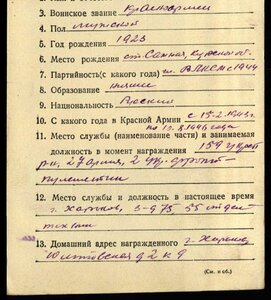 3. Воинское звание красноармеец
4. Пол мужской
5. Год рождения 1923
6. Место рождения ст. Сажная, Курской об.
7. Партийность (с какого года) чл. ВЛКСМ с 1944
8. Образование низшее
9. Национальность Русский
10. С какого года в Красной Армии с 15.2.1943 г.
по 1946 года
11. Место службы (наименование части) и занимаемая
должность в момент награждения 159
27 Армия, 2 Укр. фронт
пулеметчик
12. Место службы и должность в настоящее время
г. Харьков, 55 отдел
13. Домашний адрес награжденного г. Харьков,
д 2 к 9
(См. н об.)